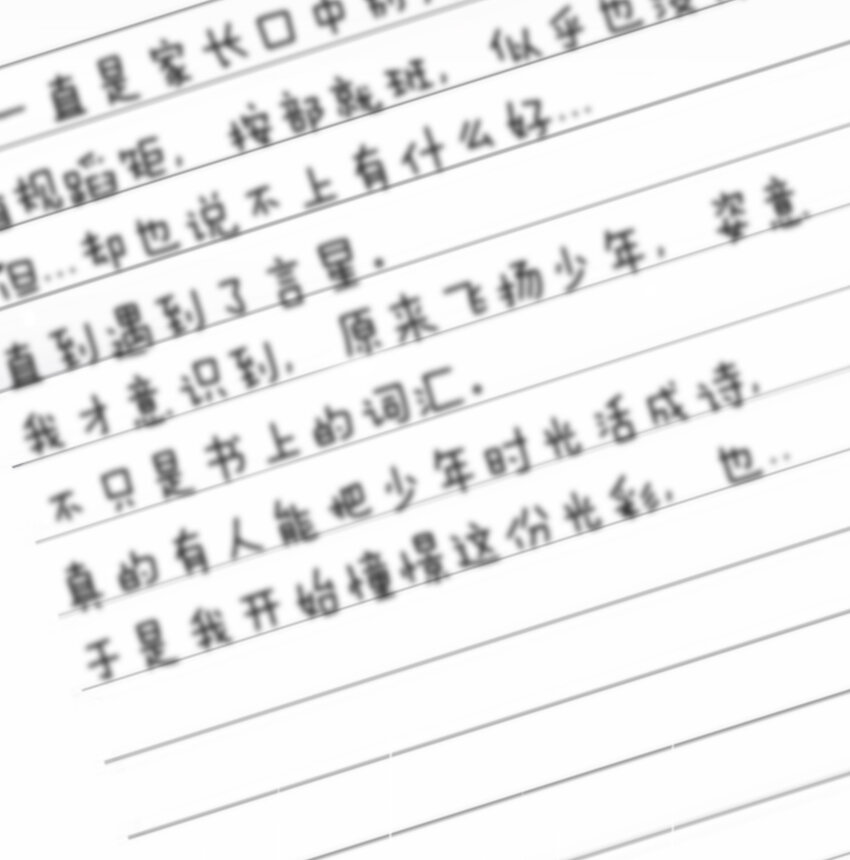 一直是家长口中的
循规蹈矩，按部就班，似乎也没
但…却也说不上有什么好…
直到遇到了言星.
我才意识到，原来飞扬少年，姿意
不只是书上的词汇.
真的有人能把少年时光活成诗，
于是我开始憧憬这份光彩，也…